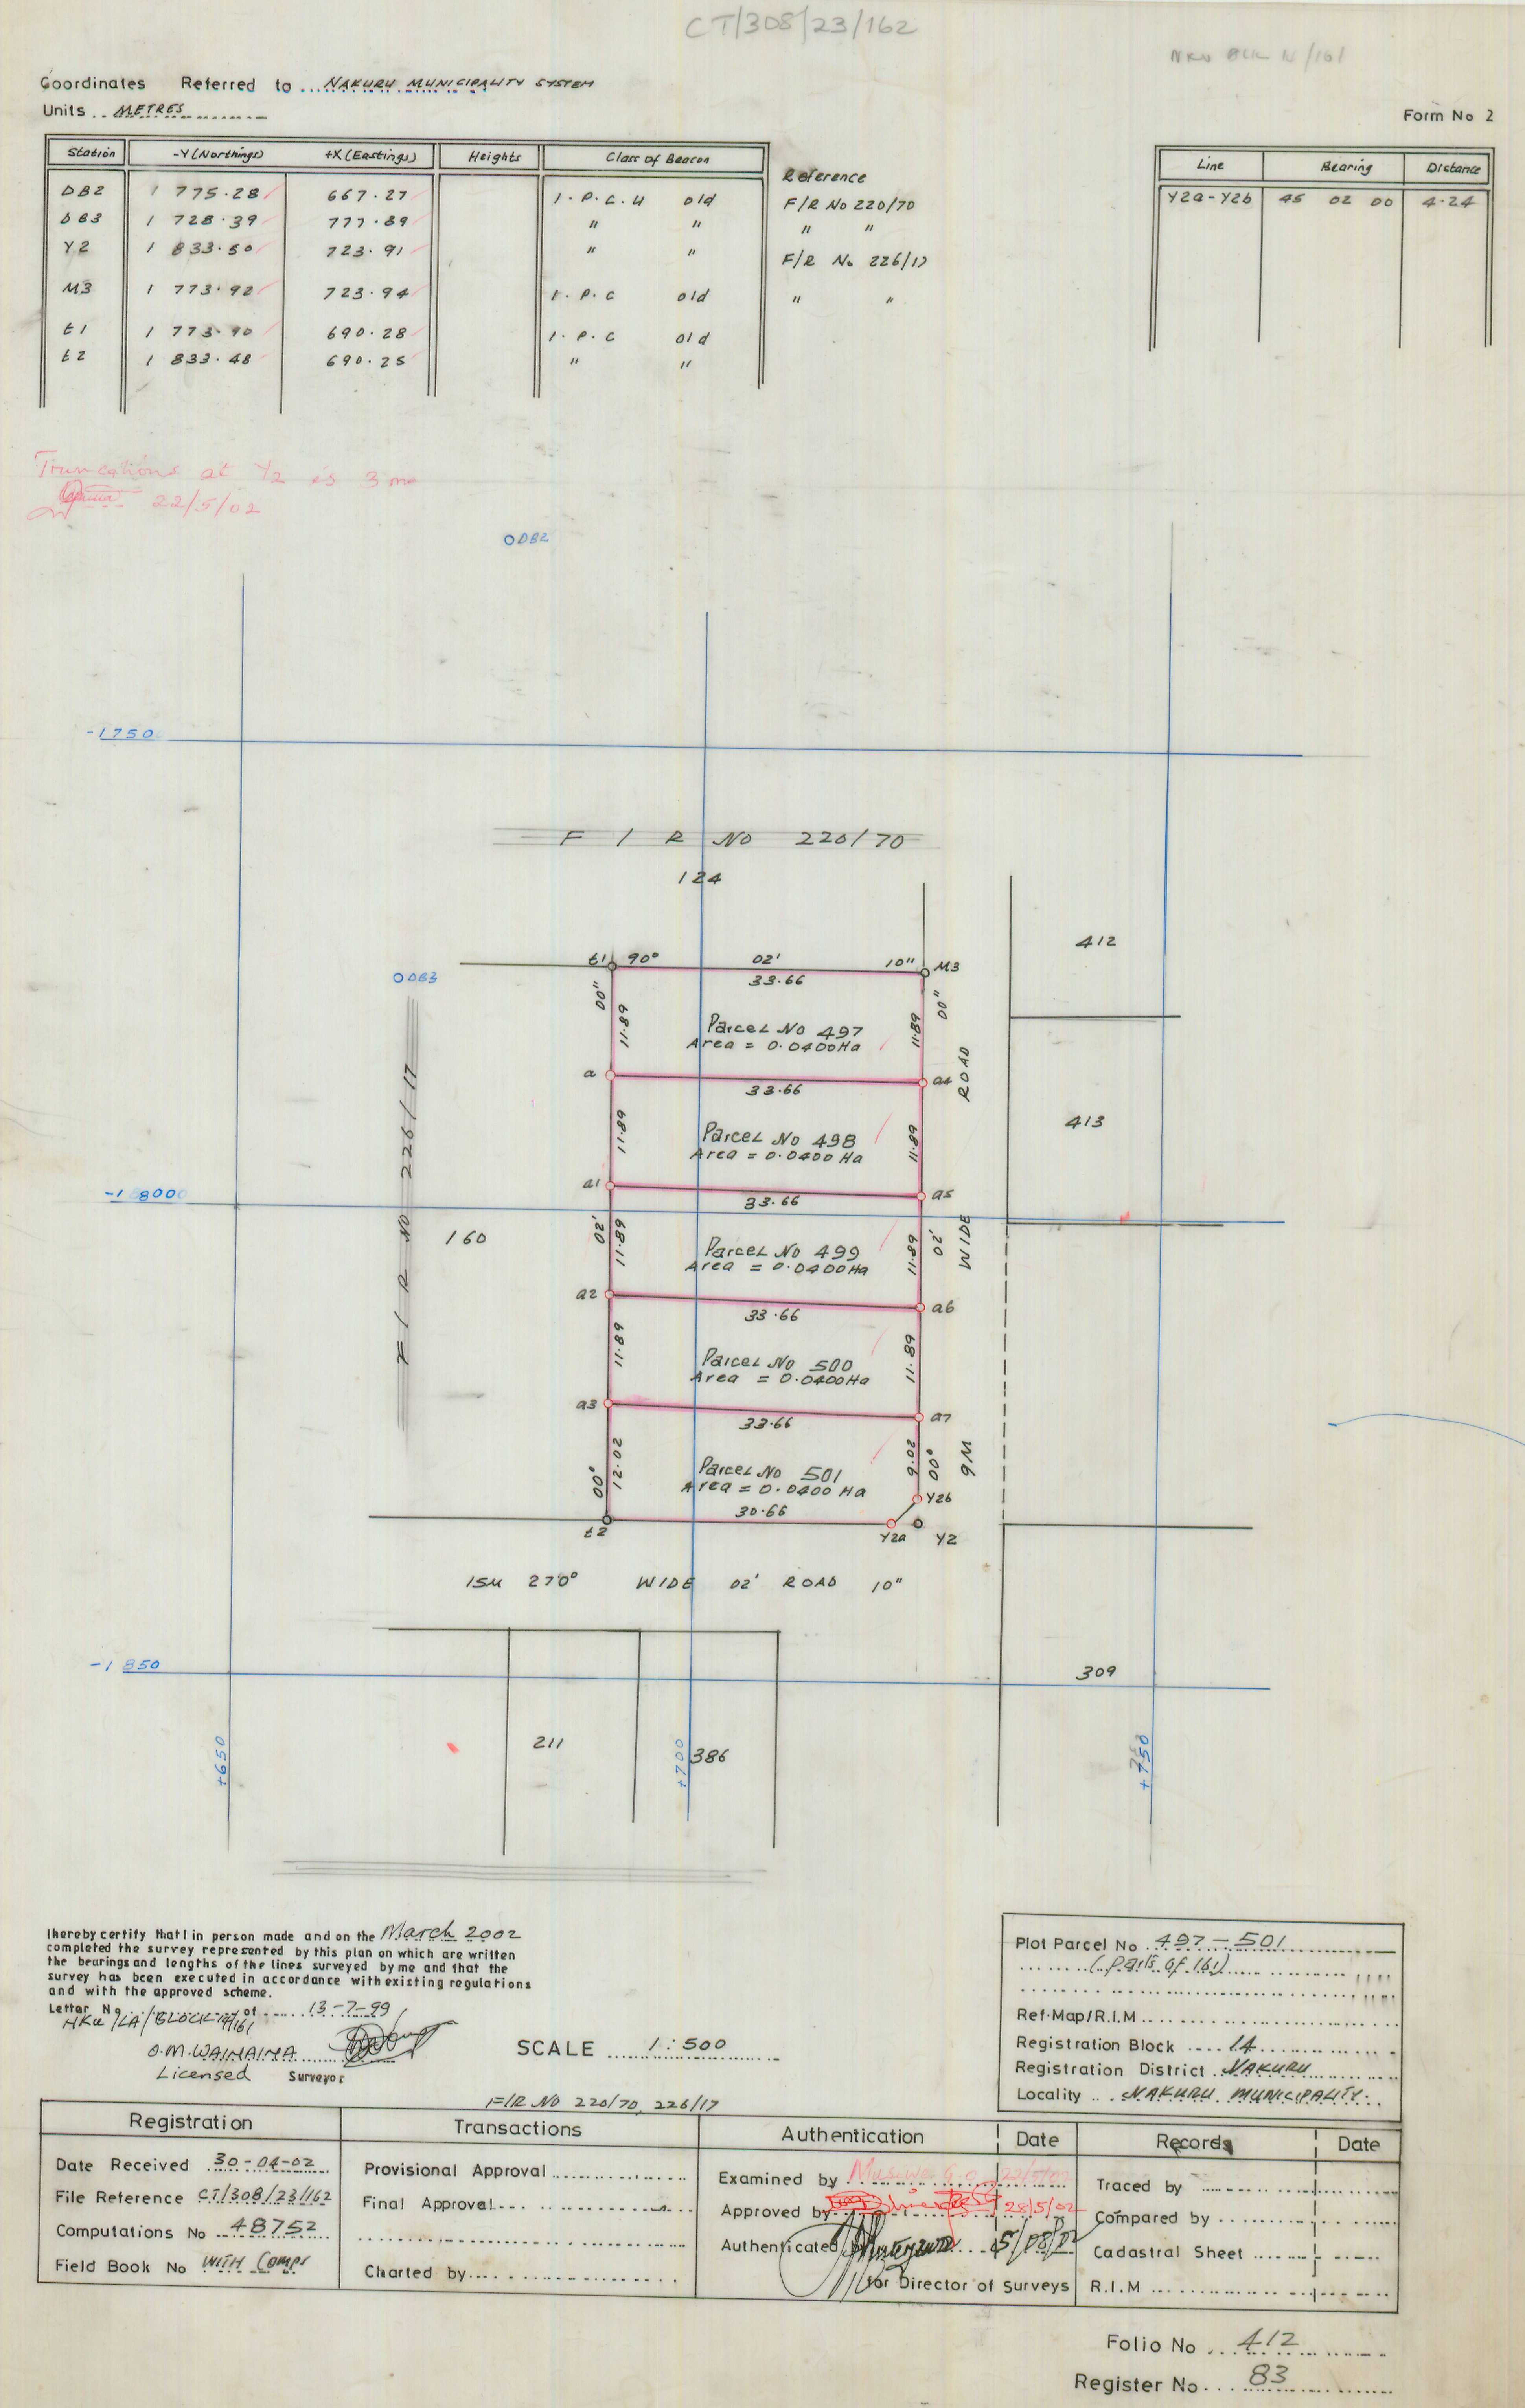 CT/308/23/162
Coordinates Referred to NAKURU MUNICIPALITY SYSTEM
Units METRES
Form No 2
Station -Y (Northings) +X (Eastings) Heights Class of Beacon Reference
DB2 1 775.28 667.27 I.P.C.U old F/R No 220/70
DB3 1 728.39 777.89 " " " "
Y2 1 833.50 723.91 " " F/R No 226/17
M3 1 773.92 723.94 I.P.C old " "
t1 1 773.90 690.28 I.P.C old
t2 1 833.48 690.25 " "
Line Bearing Distance
Y2a-Y2b 45 02 00 4.24
Truncations at Y2 is 3m
22/5/02
DB2
-1750
F / R No 220/70
124
412
t1 90° 02' 10" M3
33.66
DB3
00" 11.89 11.89 00"
Parcel No 497
Area = 0.0400Ha
ROAD
a a4
33.66
F / R No 226/17
413
11.89 11.89
Parcel No 498
Area = 0.0400 Ha
a1 a5
33.66
-1 8000
160
02' 11.89 11.89 02' WIDE
Parcel No 499
Area = 0.0400Ha
a2 a6
33.66
11.89 11.89
Parcel No 500
Area = 0.0400Ha
a3 a7
33.66
00° 12.02 9.02 00° 9M
Parcel No 501
Area = 0.0400 Ha
Y2b
30.66
t2 Y2a Y2
15M 270° WIDE 02' ROAD 10"
-1 850
309
211
386
+650
+700
+750
I hereby certify that I in person made and on the March 2002
completed the survey represented by this plan on which are written
the bearings and lengths of the lines surveyed by me and that the
survey has been executed in accordance with existing regulations
and with the approved scheme.
Letter No of 13-7-99
O.M. WAINAINA
Licensed Surveyor
SCALE 1:500
Plot Parcel No 497-501
(parts of 161)
Ref. Map/R.I.M
Registration Block 14
Registration District NAKURU
Locality NAKURU MUNICIPALITY.
F/R No 220/70, 226/17
Registration
Date Received 30-04-02
File Reference CT/308/23/162
Computations No 48752
Field Book No WITH Comps
Transactions
Provisional Approval
Final Approval
Charted by
Authentication Date
Examined by
Approved by 28/5/02
Authenticated 5/08/02
for Director of Surveys
Records Date
Traced by
Compared by
Cadastral Sheet
R.I.M
Folio No 412
Register No 83